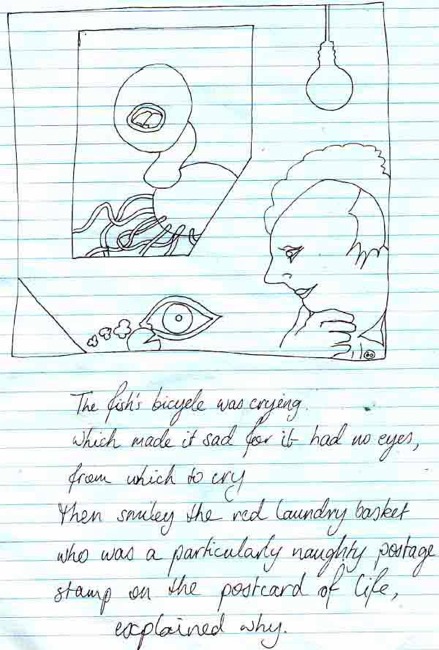 The fish's bicycle was crying.
which made it sad for it had no eyes,
from which to cry
Then smiley the red laundry basket
who was a particularly naughty postage
stamp on the postcard of life,
explained why.